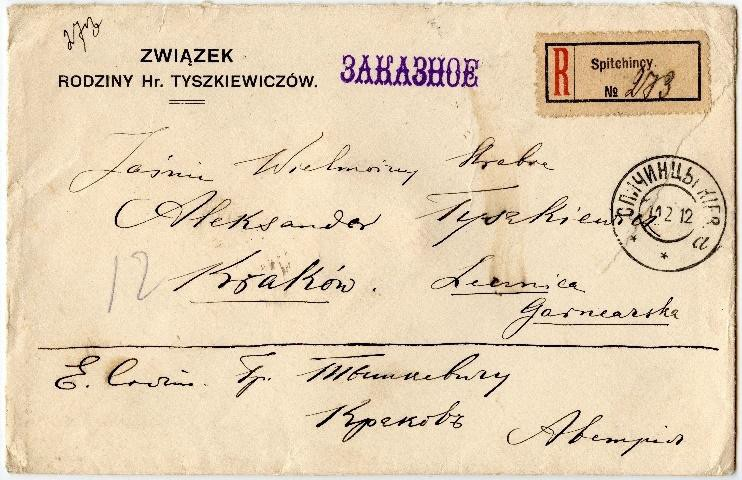 273
ZWIĄZEK
RODZINY Hr. TYSZKIEWICZÓW.
ЗАКАЗНОЕ
R
Spitchincy.
№ 273
Jaśnie Wielmożny Hrabia
Aleksander Tyszkiewicz
СПИЧИНЦЫ КІЕВ.
2 12
а
12
Kraków. Lecznica
Garncarska
Е. Сіят. Гр. Тышкевичу
Краковъ Австрія